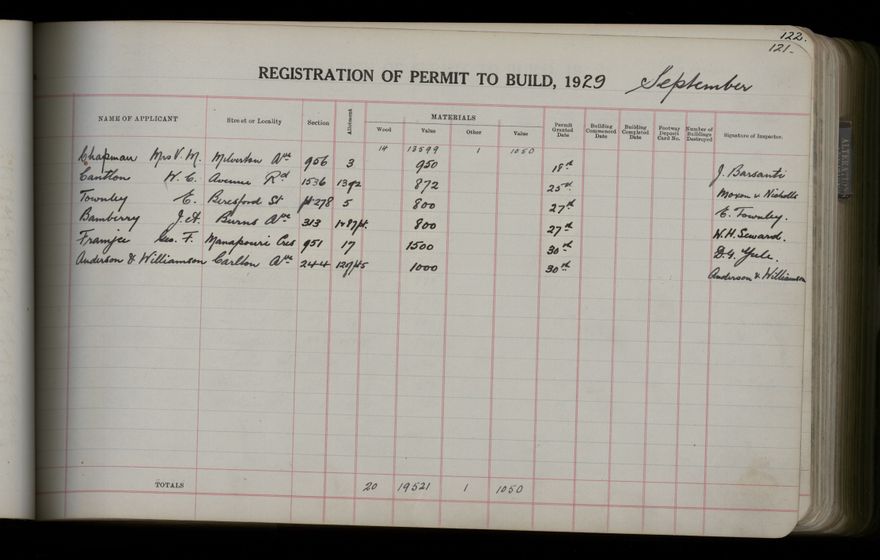 122.
121-
REGISTRATION OF PERMIT TO BUILD, 1929 September
NAME OF APPLICANT Street or Locality Section Allotment MATERIALS Wood Value Other Value Permit Granted Date Building Commenced Date Building Completed Date Footway Deposit Card No. Number of Buildings Destroyed Signature of Inspector.
14 13599 1 1050
Chapman Mrs V. M. Milverton Ave 956 3 950 18th J. Barsanti
Cantlon H. C. Avenue Rd 1536 13 872 25th Moxon & Nicholls
Townley E. Beresford St pt 278 5 800 27th E. Townley.
Bamberry J. A. Burns Ave 313 800 27th W. H. Seward.
Framjee Geo. F. Manapouri Cres 951 17 1500 30th D. G. Yule.
Anderson & Williamson Carlton Ave 244 1000 30th Anderson & Williamson
TOTALS 20 19521 1 1050